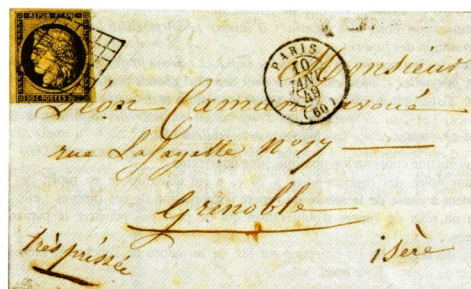 REPUB. FRANC.
20c POSTES 20c
PARIS
10
JANV.
49
(60)
Monsieur
Léon Camus avoué
rue Lafayette N° 17
Grenoble
très pressée
isère